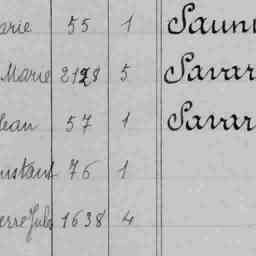 arie 55 1 Sauni
Marie 2128 5 Savar
lean 57 1 Savar
nstant 76 1
erre Jules 1638 4